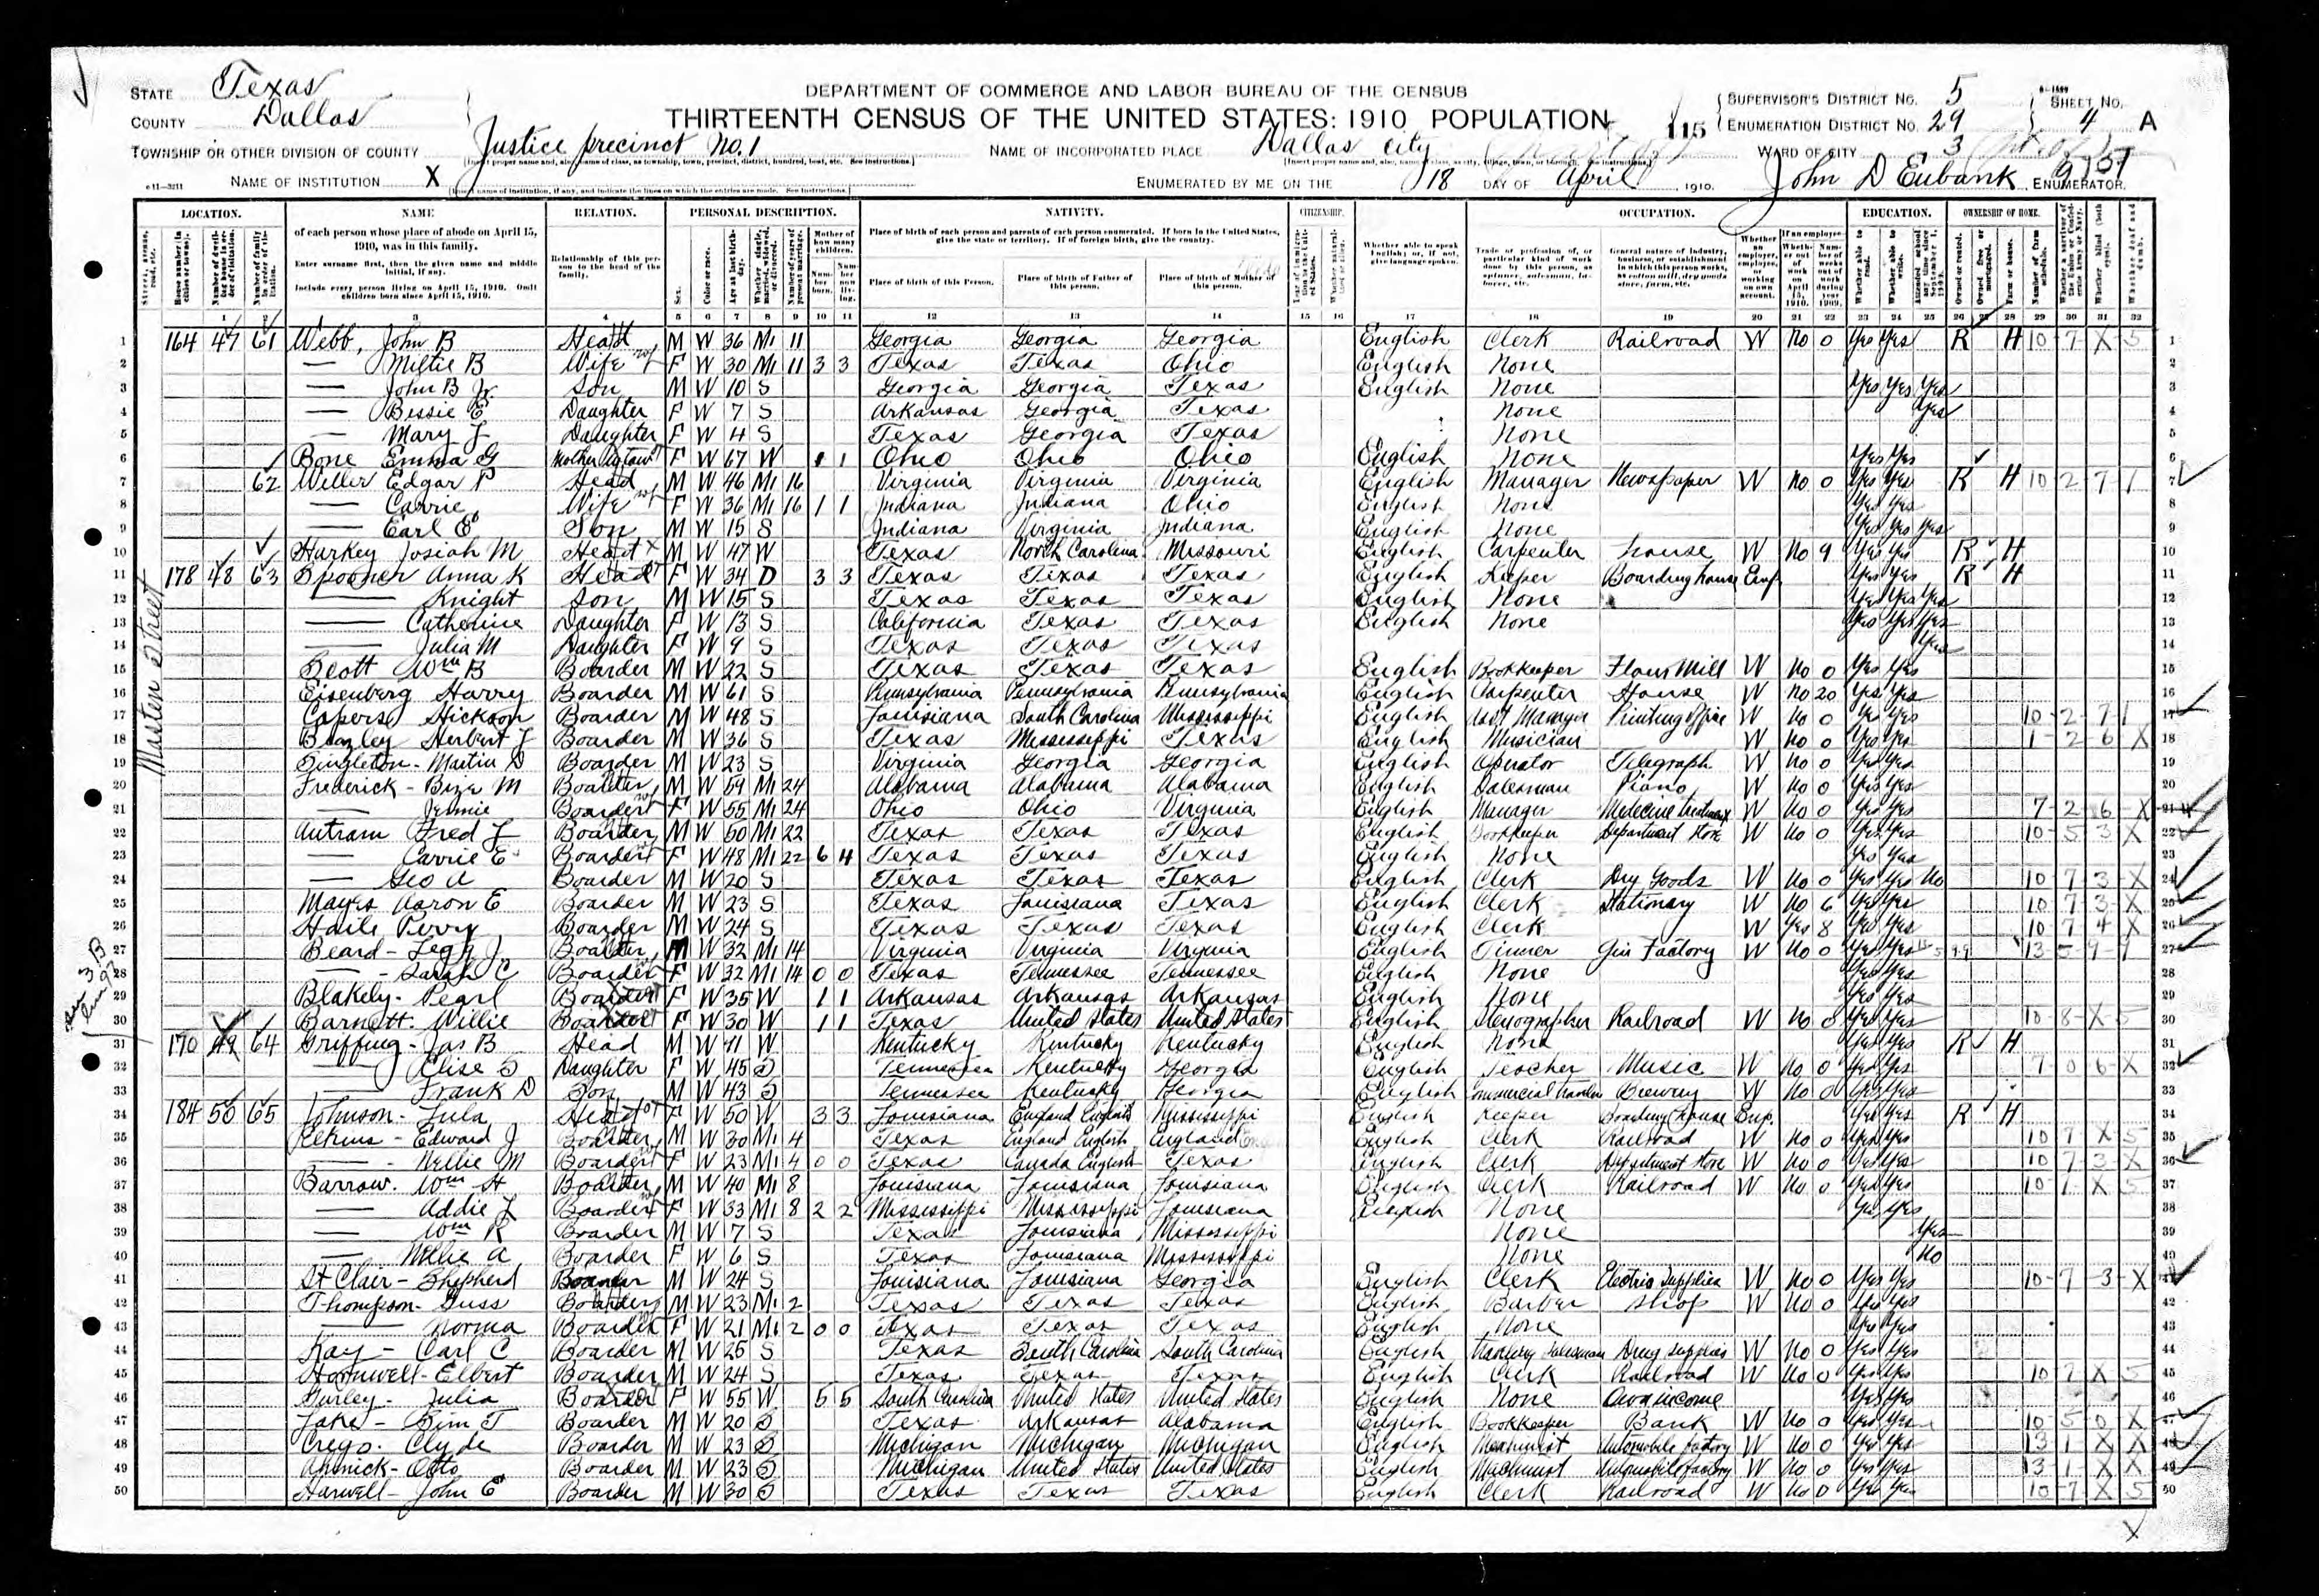 STATE Texas
COUNTY Dallas
TOWNSHIP OR OTHER DIVISION OF COUNTY Justice precinct No. 1
NAME OF INSTITUTION X
DEPARTMENT OF COMMERCE AND LABOR BUREAU OF THE CENSUS
THIRTEENTH CENSUS OF THE UNITED STATES: 1910 POPULATION
NAME OF INCORPORATED PLACE Dallas city
ENUMERATED BY ME ON THE 18 DAY OF April, 1910.
115
SUPERVISOR'S DISTRICT No. 5 SHEET No.
ENUMERATION DISTRICT No. 29 4 A
WARD OF CITY 3
John D Eubank, ENUMERATOR.
LOCATION. NAME RELATION. PERSONAL DESCRIPTION. NATIVITY. CITIZENSHIP. OCCUPATION. EDUCATION. OWNERSHIP OF HOME.
of each person whose place of abode on April 15, 1910, was in this family.
Enter surname first, then the given name and middle initial, if any.
Include every person living on April 15, 1910. Omit children born since April 15, 1910.
Relationship of this person to the head of the family.
Place of birth of each person and parents of each person enumerated. If born in the United States, give the state or territory. If of foreign birth, give the country.
Place of birth of this Person. Place of birth of Father of this person. Place of birth of Mother of this person.
Masten Street
1 164 47 61 Webb, John B Head M W 36 M1 11 Georgia Georgia Georgia English Clerk Railroad W No 0 Yes Yes R H 10-7-X-5 1
2 — Mittie B Wife F W 30 M1 11 3 3 Texas Texas Ohio English None 2
3 — John B Jr. Son M W 10 S Georgia Georgia Texas English None Yes Yes Yes 3
4 — Bessie E Daughter F W 7 S Arkansas Georgia Texas None Yes 4
5 — Mary J Daughter F W 4 S Texas Georgia Texas None 5
6 Bone Emma G Mother in law F W 67 W 1 1 Ohio Ohio Ohio English None Yes Yes 6
7 62 Edgar P Head M W 46 M1 16 Virginia Virginia Virginia English Manager Newspaper W No 0 Yes Yes R H 10 2 7 1 7
8 — Carrie Wife F W 36 M1 16 1 1 Indiana Indiana Ohio English None Yes Yes 8
9 — Earl E Son M W 15 S Indiana Virginia Indiana English None Yes Yes Yes 9
10 Harkey Josiah M Head M W 47 W Texas North Carolina Missouri English Carpenter house W No 9 Yes Yes R H 10
11 178 48 63 Spooner Anna K Head F W 34 D 3 3 Texas Texas Texas English Keeper Boarding house Emp Yes Yes R H 11
12 — Knight Son M W 15 S Texas Texas Texas English None Yes Yes Yes 12
13 — Catherine Daughter F W 13 S California Texas Texas English None Yes Yes Yes 13
14 — Julia M Daughter F W 9 S Texas Texas Texas Yes 14
15 Scott Wm B Boarder M W 22 S Texas Texas Texas English Bookkeeper Flour Mill W No 0 Yes Yes 15
16 Eisenberg Harry Boarder M W 61 S Pennsylvania Pennsylvania Pennsylvania English Carpenter House W No 20 Yes Yes 16
17 Capers Hickson Boarder M W 48 S Louisiana South Carolina Mississippi English Asst Manager Printing office W No 0 Yes Yes 10-2-7 1 17
18 Beazley Herbert J Boarder M W 36 S Texas Mississippi Texas English Musician W No 0 Yes Yes 1-2-6 X 18
19 Singleton - Martin D Boarder M W 23 S Virginia Georgia Georgia English Operator Telegraph W No 0 Yes Yes 19
20 Frederick - M Boarder M W 59 M1 24 Alabama Alabama Alabama English Salesman Piano W No 0 Yes Yes 20
21 — Jennie Boarder F W 55 M1 24 Ohio Ohio Virginia English Manager Medecine W No 0 Yes Yes 7-2-6-X 21
22 Autram Fred J Boarder M W 50 M1 22 Texas Texas Texas English Bookkeeper Department store W No 0 Yes Yes 10-5 3 X 22
23 — Carrie E Boarder F W 48 M1 22 6 4 Texas Texas Texas English None Yes Yes 23
24 — Geo A Boarder M W 20 S Texas Texas Texas English Clerk Dry Goods W No 0 Yes Yes No 10 7 3-X 24
25 Mayes Aaron E Boarder M W 23 S Texas Louisiana Texas English Clerk Stationary W No 6 Yes Yes 10 7 3-X 25
26 Haile Perry Boarder M W 24 S Texas Texas Texas English Clerk W Yes 8 Yes Yes 10-7 4 X 26
27 Beard - J Boarder M W 32 M1 14 Virginia Virginia Virginia English Tinner Gin Factory W No 0 Yes Yes 13-5-9-9 27
28 — Sarah C Boarder F W 32 M1 14 0 0 Texas Tennessee Tennessee English None Yes Yes 28
29 Blakely - Pearl Boarder F W 35 W 1 1 Arkansas Arkansas Arkansas English None Yes Yes 29
30 Barnett. Willie Boarder F W 30 W 1 1 Texas United States United States English Stenographer Railroad W No 0 Yes Yes 10-8-X-5 30
31 170 49 64 Griffing - Jas B Head M W 71 W Kentucky Kentucky Kentucky English None Yes Yes R H 31
32 — Elise S Daughter F W 45 S Tennessee Kentucky Georgia English Teacher Music W No 0 Yes Yes 7 0 6-X 32
33 — Frank D Son M W 43 S Tennessee Kentucky Georgia English Commercial traveler Brewery W No 0 Yes Yes 33
34 184 50 65 Johnson - Lula Head F W 50 W 3 3 Louisiana England English Mississippi English Keeper Boarding house Emp. Yes Yes R H 34
35 Edward J Boarder M W 30 M1 4 Texas England English England English Clerk Railroad W No 0 Yes Yes 10 7 X 5 35
36 — Nellie M Boarder F W 23 M1 4 0 0 Texas Canada English Texas English Clerk Department store W No 0 Yes Yes 10 7-3-X 36
37 Barrow. Wm H Boarder M W 40 M1 8 Louisiana Louisiana Louisiana English Clerk Railroad W No 0 Yes Yes 10-7 X 5 37
38 — Addie L Boarder F W 33 M1 8 2 2 Mississippi Mississippi Louisiana English None Yes Yes 38
39 — Wm R Boarder M W 7 S Texas Louisiana Mississippi None Yes 39
40 — Nellie A Boarder F W 6 S Texas Louisiana Mississippi None No 40
41 St Clair - Shepherd Boarder M W 24 S Louisiana Louisiana Georgia English Clerk Electric Supplies W No 0 Yes Yes 10-7-3-X 41
42 Thompson - Guss Boarder M W 23 M1 2 Texas Texas Texas English Barber shop W No 0 Yes Yes 42
43 — Norma Boarder F W 21 M1 2 0 0 Texas Texas Texas English None Yes Yes 43
44 Kay - Carl C Boarder M W 25 S Texas South Carolina South Carolina English traveling salesman Drug supplies W No 0 Yes Yes 44
45 Hornwell - Elbert Boarder M W 24 S Texas Texas Texas English Clerk Railroad W No 0 Yes Yes 10 7 X 5 45
46 Gurley - Julia Boarder F W 55 W 5 5 South Carolina United States United States English None Own income Yes Yes 46
47 Lake - Sim T Boarder M W 20 S Texas Arkansas Alabama English Bookkeeper Bank W No 0 Yes Yes 10 5 0 X 47
48 Crego. Clyde Boarder M W 23 S Michigan Michigan Michigan English Machinist Automobile factory W No 0 Yes Yes 13-1-X X 48
49 Otto Boarder M W 23 S Michigan United States United States English Machinist Automobile factory W No 0 Yes Yes 13-1-X X 49
50 Harwell - John E Boarder M W 30 S Texas Texas Texas English Clerk Railroad W No 0 Yes Yes 10-7 X 5 50